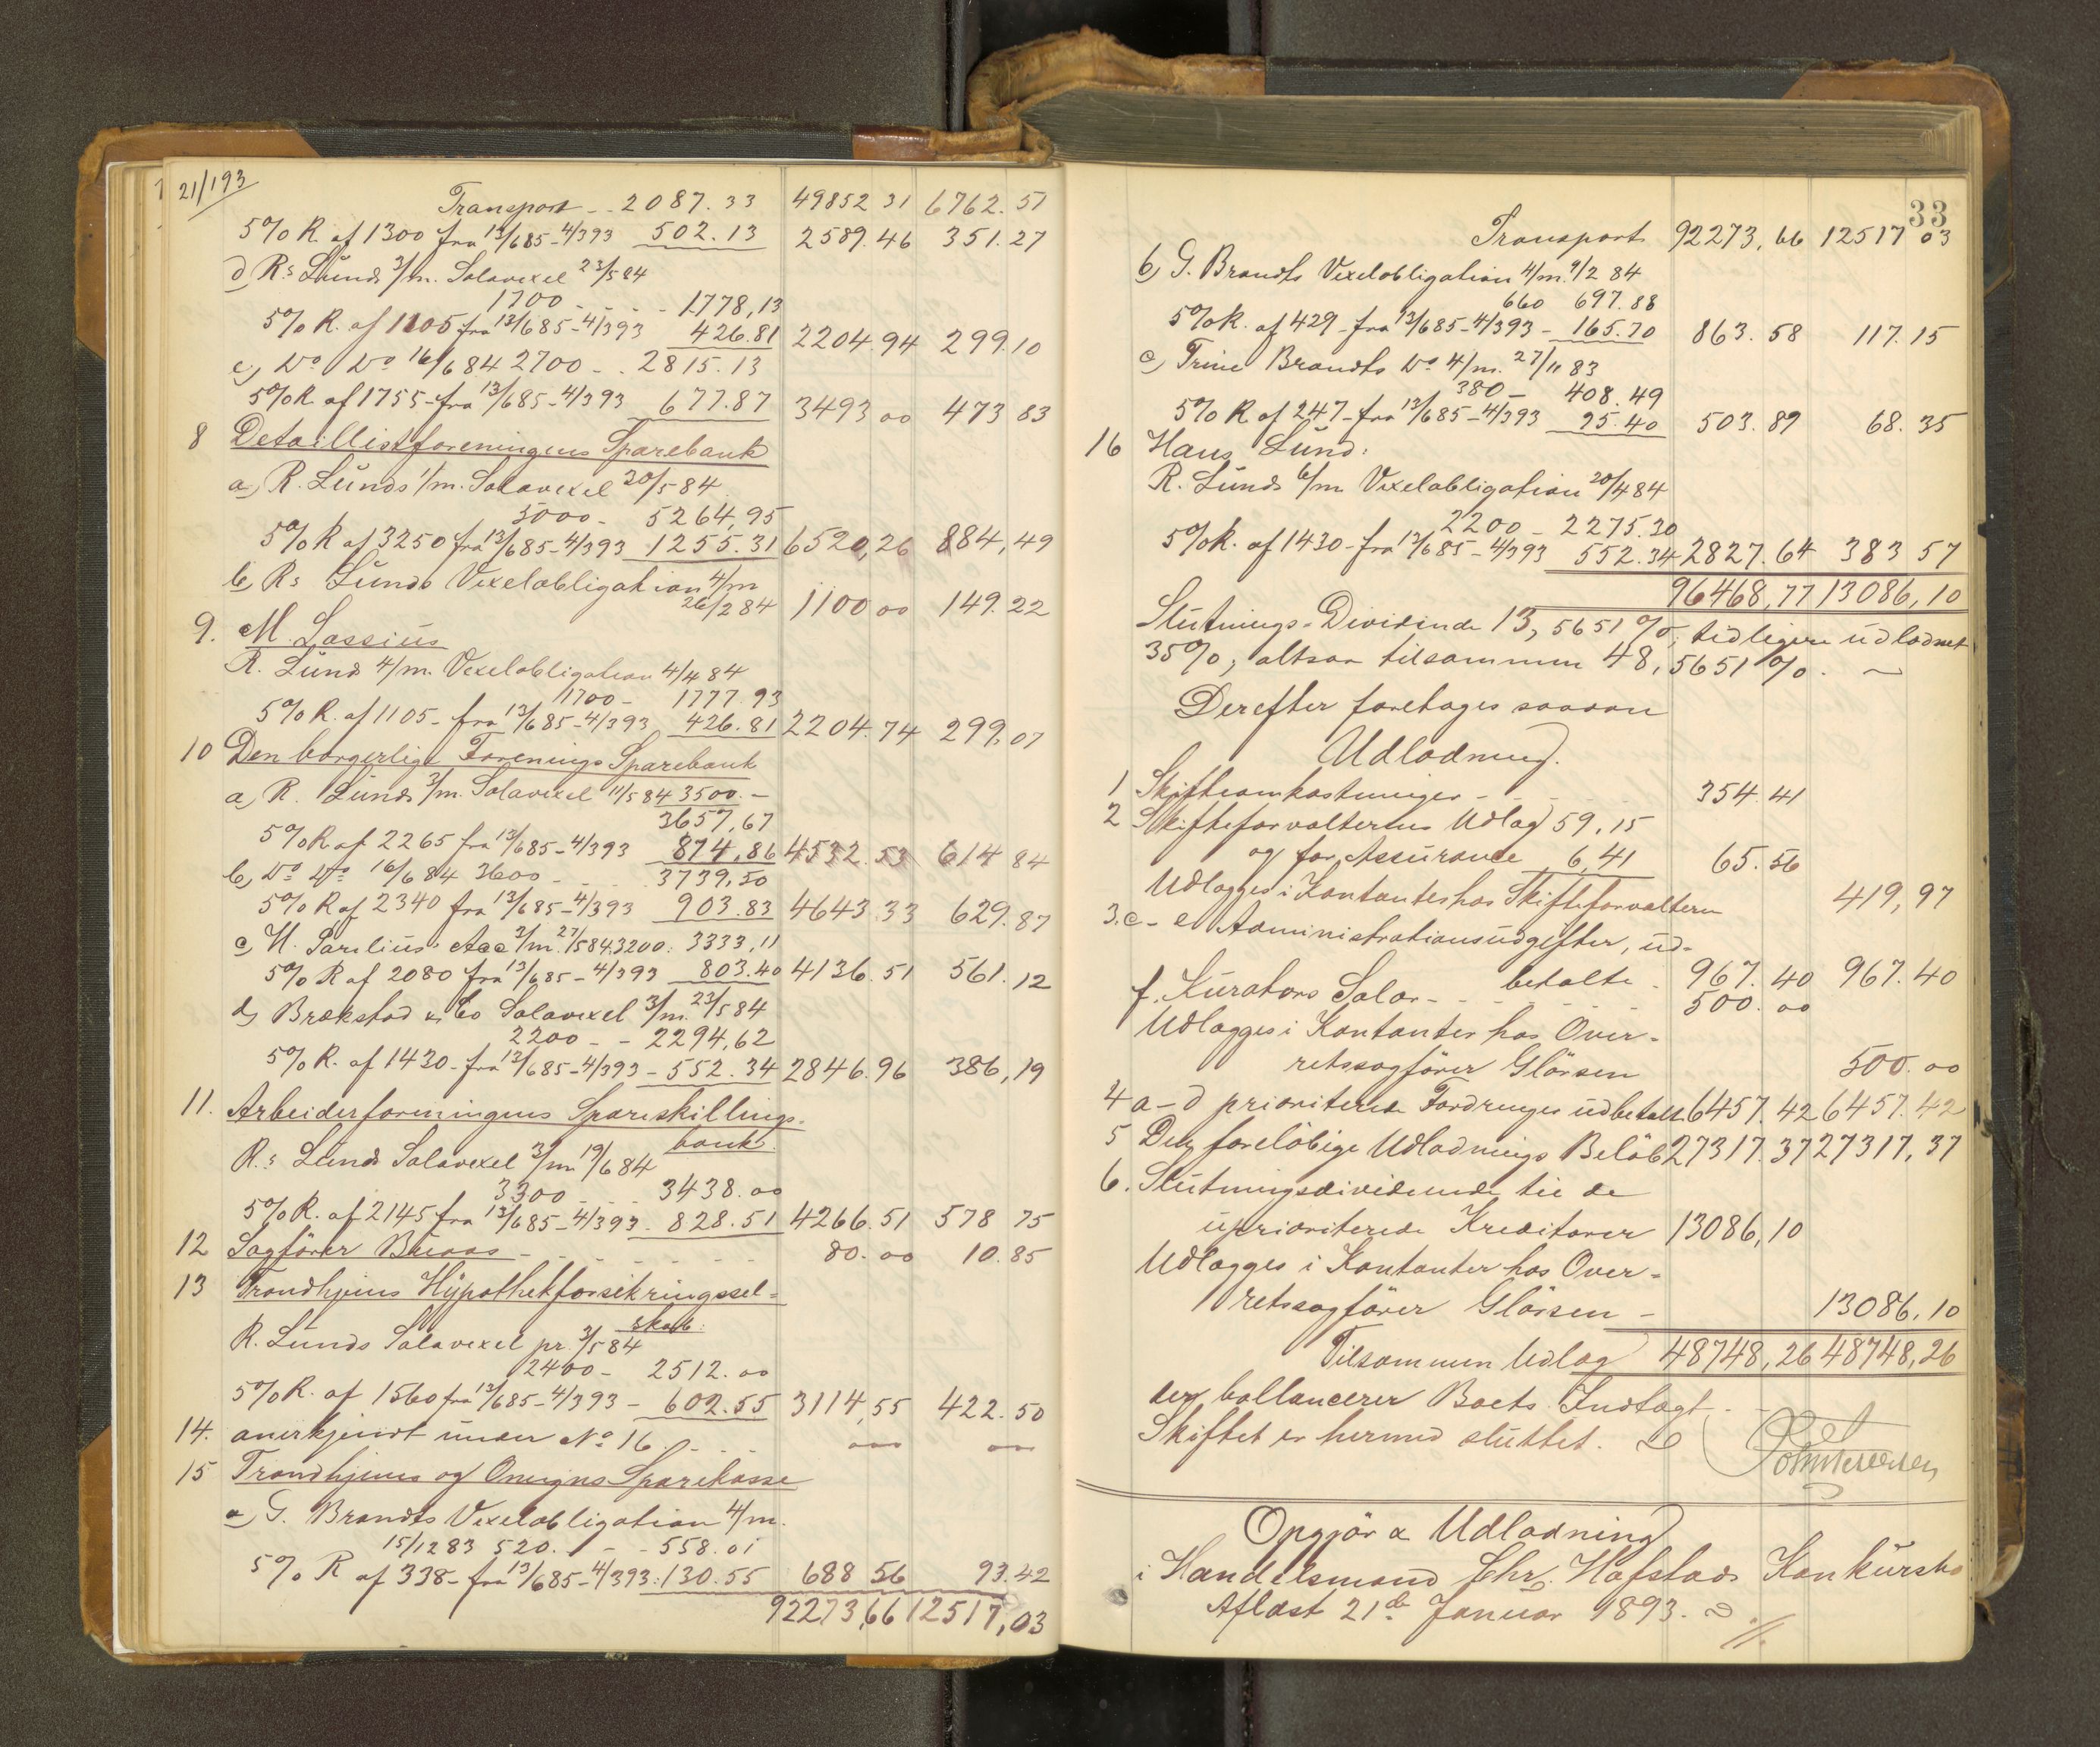 21/193
Transport - - 2087.33 49852 31 6762.51
5% R. af 1300 fra 13/685-4/393 502.13 2589.46 351.27
d) Rs Lunds 3/m. Solavexel 23/5 84
1700 - - - 1778,13
5% R. af 1105 fra 13/685-4/393 426.81 2204.94 299.10
e) Do Do 16/6 84 2700 - - 2815.13
5% R af 1755 - fra 13/685-4/393 677.87 3493 00 473 83
8 Detaillistforeningens Sparebank
a) R. Lunds 1/m. Solavexel 20/5 84
5000 - 5264,95
5% R af 3250 fra 13/685-4/393 1255.31 6520,26 884,49
b) Rs Lunds Vexelobligation 4/m
26/2 84 1100 00 149.22
9. M. Lassius
R. Lund 4/m. Vexelobligation 4/4 84
1700 - 1777.93
5% R. af 1105 - fra 13/685-4/393 426.81 2204.74 299,07
10 Den borgerlige Forenings Sparebank
a) R. Lunds 3/m. Solavexel 11/5 84 3500. -
3657,67
5% R af 2265 fra 13/685-4/393 874,86 4532.53 614 84
b) Do Do 16/6 84 3600 - - - 3739,50
5% R af 2340 fra 13/685-4/393 903.83 4643.33 629.87
c) H. Parelius' Acc 3/m. 27/5 84 3200. 3333,11
5% R af 2080 fra 13/685-4/393 803.40 4136.51 561.12
d) Brækstad & Co Solavexel 3/m. 23/5 84
2200 - - 2294,62
5% R. af 1430 - fra 13/685-4/393 - 552.34 2846.96 386,19
11. Arbeiderforeningens Spareskillings-
bank.
R.s Lunds Solavexel 3/m 19/6 84
3300 - - - 3438.00
5% R. af 2145 fra 13/685-4/393 - 828.51 4266.51 578 75
12 Sagfører Buaas - - - 80.00 10.85
13 Trondhjems Hypothekforsikringssel=
skab:
R. Lunds Solavexel pr. 3/5 84
2400 - 2512.00
5% R. af 1560 fra 13/685-4/393 - 602.55 3114,55 422.50
14. anerkjendt under No 16 - - -
15 Trondhjems og Omegns Sparekasse
a) G. Brandts Vexelobligation 4/m.
15/12 83 520. - - 558.01
5% R af 338 - fra 13/685-4/393: 130.55 688 56 93.42
92273,66 12517,03
33
Transport 92273,66 12517 03
b) G. Brandts Vexelobligation 4/m. 9/2 84
660 697.88
5% R. af 429 - fra 13/685-4/393 - 165.70 863.58 117.15
c) Trine Brandts Do 4/m. 27/11 83
380 - 408.49
5% R af 247 - fra 13/685-4/393 95.40 503.89 68.35
16 Hans Lund:
R. Lunds 6/m Vexelobligation 20/4 84
2200 - 2275.30
5% R. af 1430 - fra 13/685-4/393 552.34 2827.64 383 57
96468,77 13086,10
Slutnings-Dividende 13,5651 %, tidligere udloddet
35%, altsaa tilsammen 48,5651 %. -
Derefter foretages saadan
Udlodning.
1 Skifteomkostninger - - - 354.41
2 Skifteforvalterens Udlæg 59,15
og for Assurance 6,41 65.56
Udlægges i Kontanter hos Skifteforvalteren 419,97
3. c - e Administrationsudgifter, ud-
betalte - 967.40 967.40
f. Kurators Salær - - - 500.00
Udlægges i Kontanter hos Over-
retssagfører Glørsen 500.00
4 a - d prioriterede Fordringer udbetalt 6457.42 6457.42
5 Det foreløbige Udlodnings Beløb 27317.37 27317,37
6. Slutningsdividende til de
uprioriterede Kreditorer 13086,10
Udlægges i Kontanter hos Over-
retssagfører Glørsen - 13086,10
Tilsammen Udlæg 48748,26 48748,26
der ballancerer Boets Indtægt. - -
Skiftet er hermed sluttet.
Opgjør & Udlodning
i Handelsmand Chr. Hafstads Konkursbo
Aflæst 21de Januar 1893.